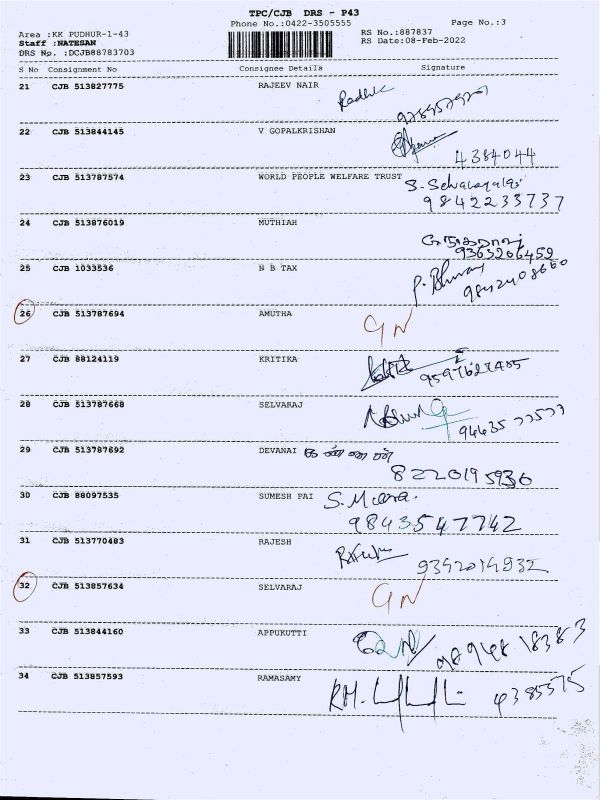 TPC/CJB DRS - P43
Phone No.:0422-3505555
Page No.:3
Area :KK PUDHUR-1-43
RS No.:887837
Staff :NATESAN
RS Date:08-Feb-2022
DRS No. :DCJB88783703
S No Consignment No Consignee Details Signature
21 CJB 513827775 RAJEEV NAIR
22 CJB 513844145 V GOPALKRISHAN
4384044
23 CJB 513787574 WORLD PEOPLE WELFARE TRUST
9842233737
24 CJB 513876019 MUTHIAH
9363206452
25 CJB 1033536 N B TAX
26 CJB 513787694 AMUTHA
27 CJB 88124119 KRITIKA
28 CJB 513787668 SELVARAJ
94435 77577
29 CJB 513787692 DEVANAI
8220195930
30 CJB 88097535 SUMESH PAI
9843547742
31 CJB 513770483 RAJESH
32 CJB 513857634 SELVARAJ
33 CJB 513844160 APPUKUTTI
98948 18383
34 CJB 513857593 RAMASAMY
4385575